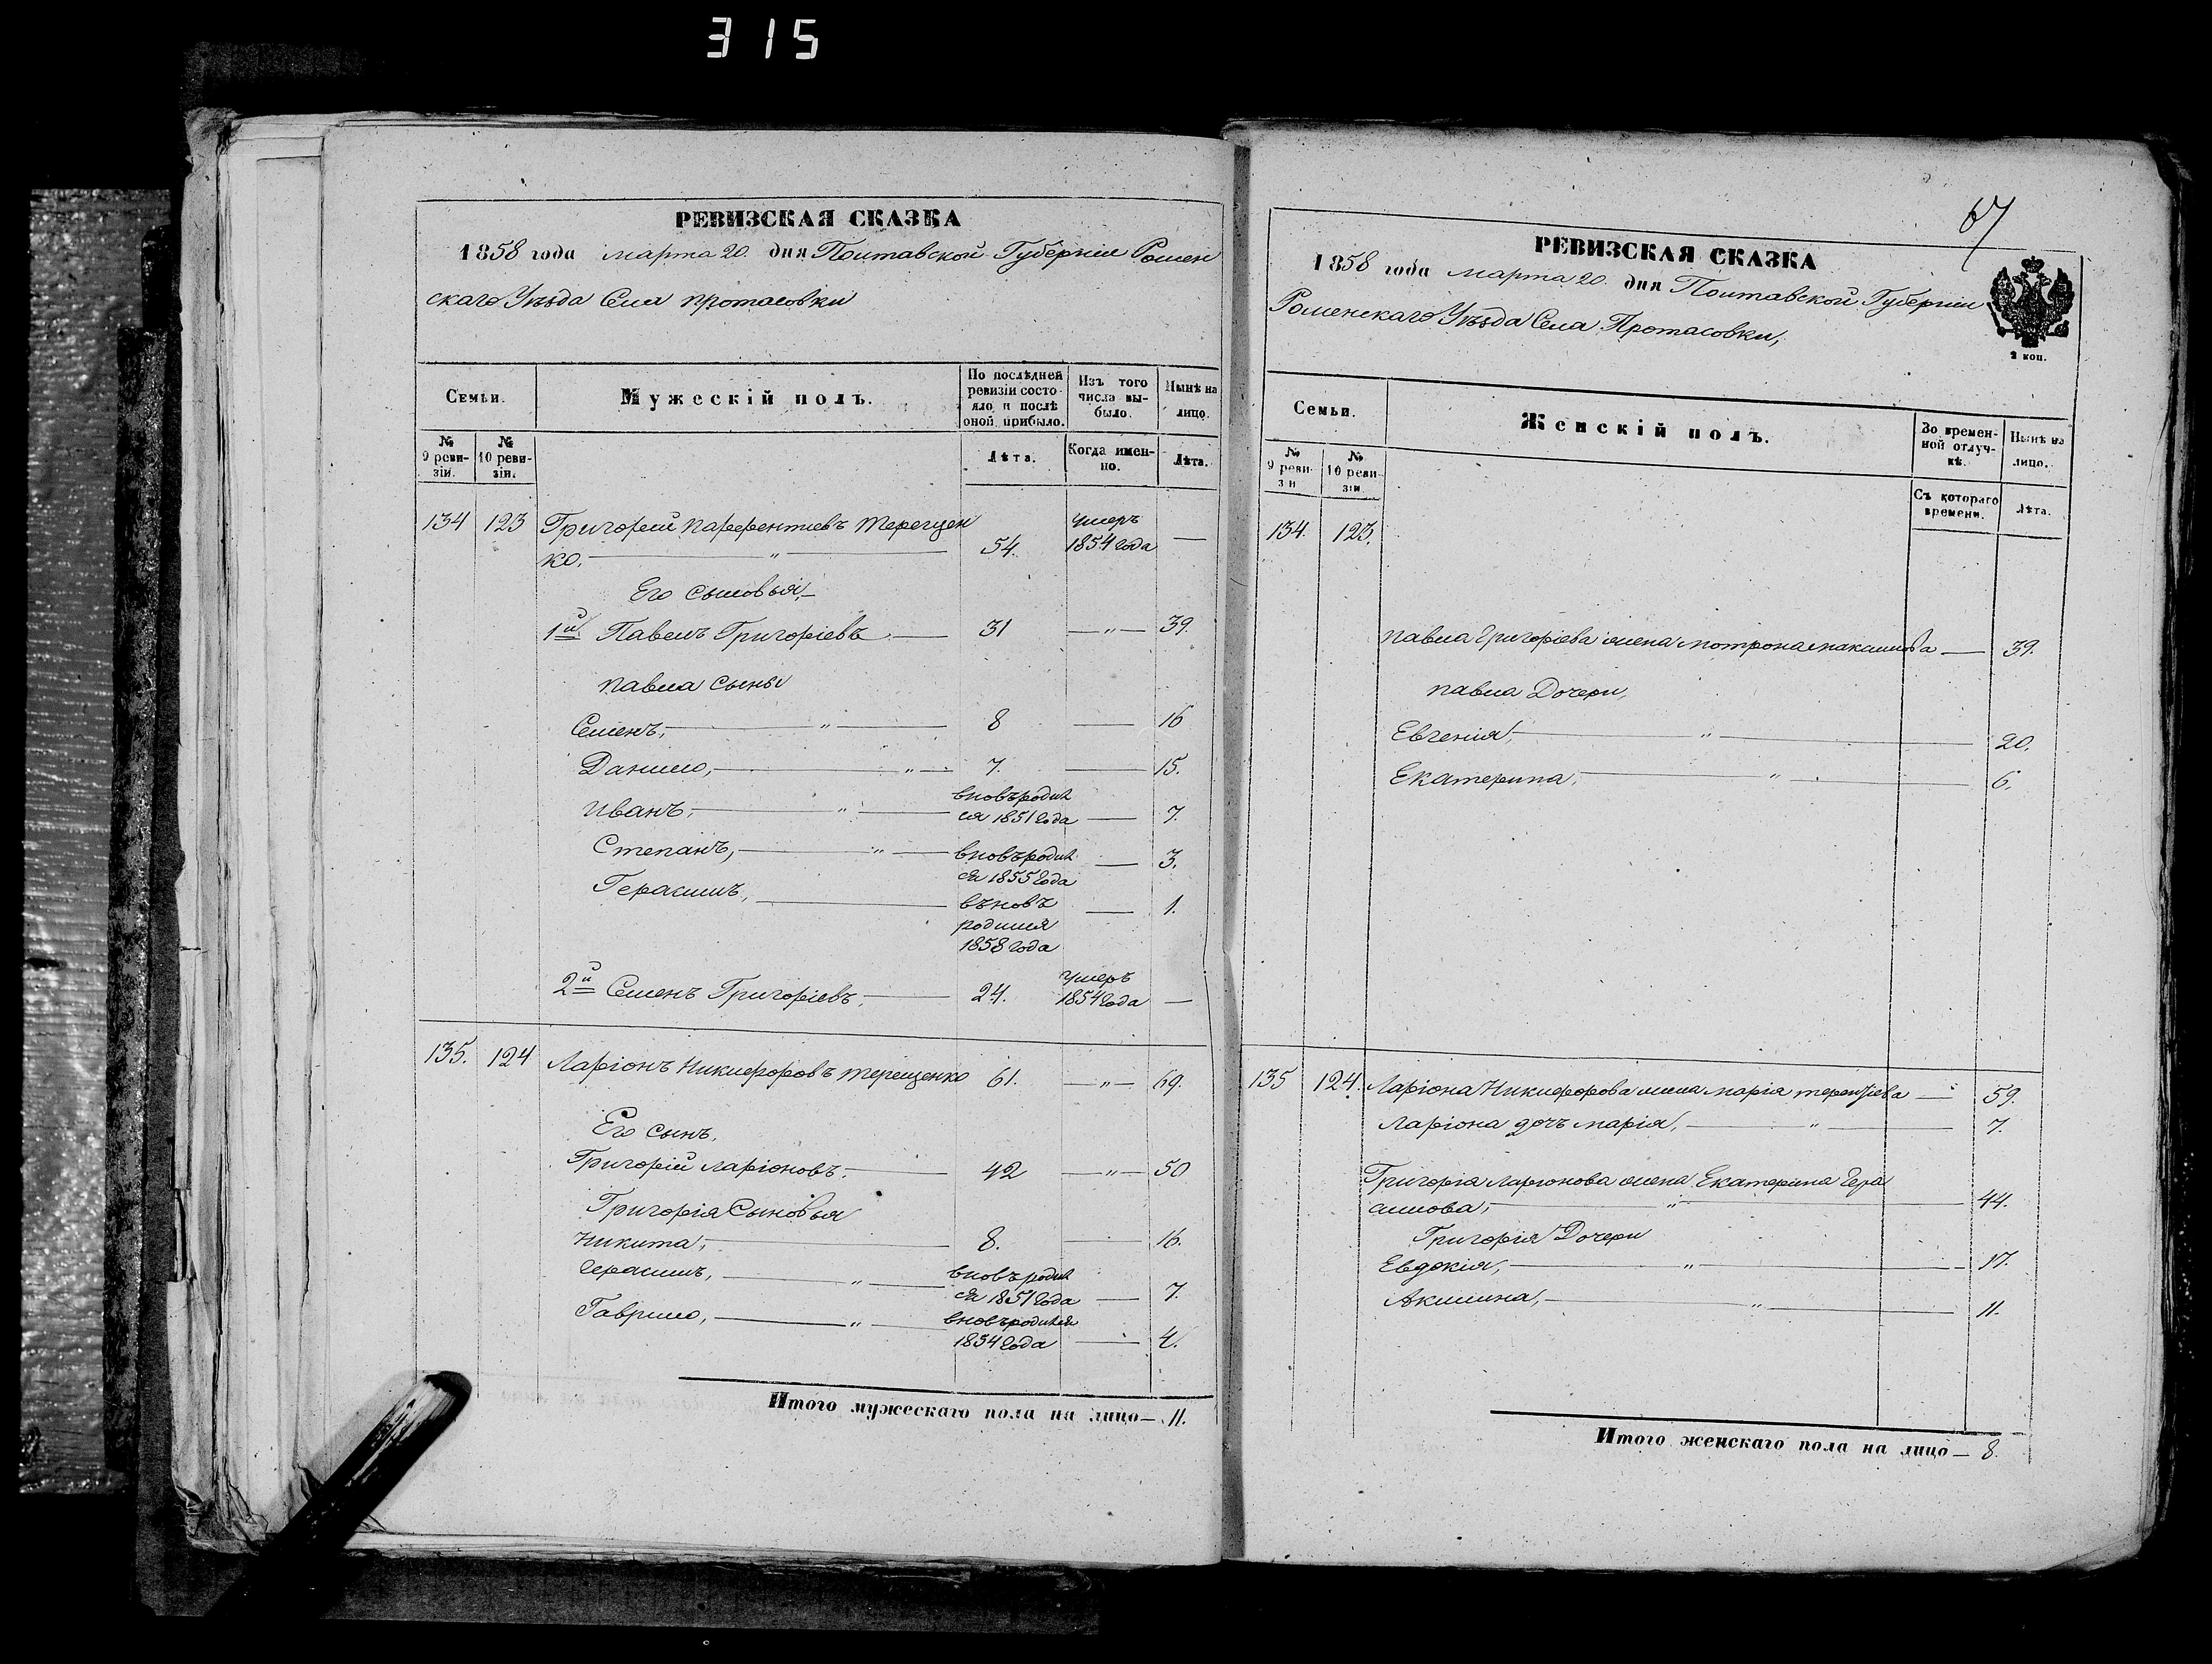 315
РЕВИЗСКАЯ СКАЗКА
1858 года марта 20. дня Полтавской Губерніи Ромен
скаго Уѣзда Села протасовки
Семьи.
Мужескій полъ.
По послѣдней ревизіи состояло и послѣ оной прибыло.
Изъ того числа выбыло.
Нынѣ на лицо.
№ 9 ревизіи.
№ 10 ревизіи.
Лѣта.
Когда именно.
Лѣта.
134 123 Григорій Парфентиевъ Терещен
ко. — " — 54. умеръ 1854 года —
Его сыновья,
1й Павелъ Григоріевъ — 31 — " — 39.
павла сыны
Семенъ, — " — 8 — 16
Данило, — " — 7. — 15.
Иванъ, — " — вновъродил
ся 1851 года — 7.
Степанъ, — " — вновъродил
ся 1855 года — 3.
Герасимъ, — вѣновъ
родился
1858 года — 1.
2й Семенъ Григоріевъ, — 24. умеръ 1854 года —
135. 124 Ларіонъ Никифоровъ терещенко 61. — " — 69.
Его сынъ,
Григорій ларіоновъ, — 42 — " — 50
Григорія Сыновья
Никита, — 8. — 16.
Герасимъ, — " — вновъродил
ся 1851 года — 7.
Гаврило, — " — вновъродился
1854 года — 4.
Итого мужескаго пола на лицо — 11.
67
РЕВИЗСКАЯ СКАЗКА
1858 года марта 20. дня Полтавской Губерніи
Роменскаго Уѣзда Села Протасовки,
2 коп.
Семьи.
Женскій полъ.
Во временной отлучкѣ.
Нынѣ на лицо.
№ 9 ревизіи
№ 10 ревизіи
Съ котораго времени.
Лѣта.
134. 123.
павла Григоріева жена мотрона максимова — 39.
павла Дочери,
Евгенія, — " — 20.
Екатерина, — " — 6.
135 124. Ларіона Никифорова жена марія терентіева — 59.
Ларіона дочъ марія, — " — 7.
Григорія ларіонова жена Екатерина Гера
симова, — " — 44.
Григорія Дочери
Евдокія, — " — 17.
Акилина, — " — 11.
Итого женскаго пола на лицо — 8.